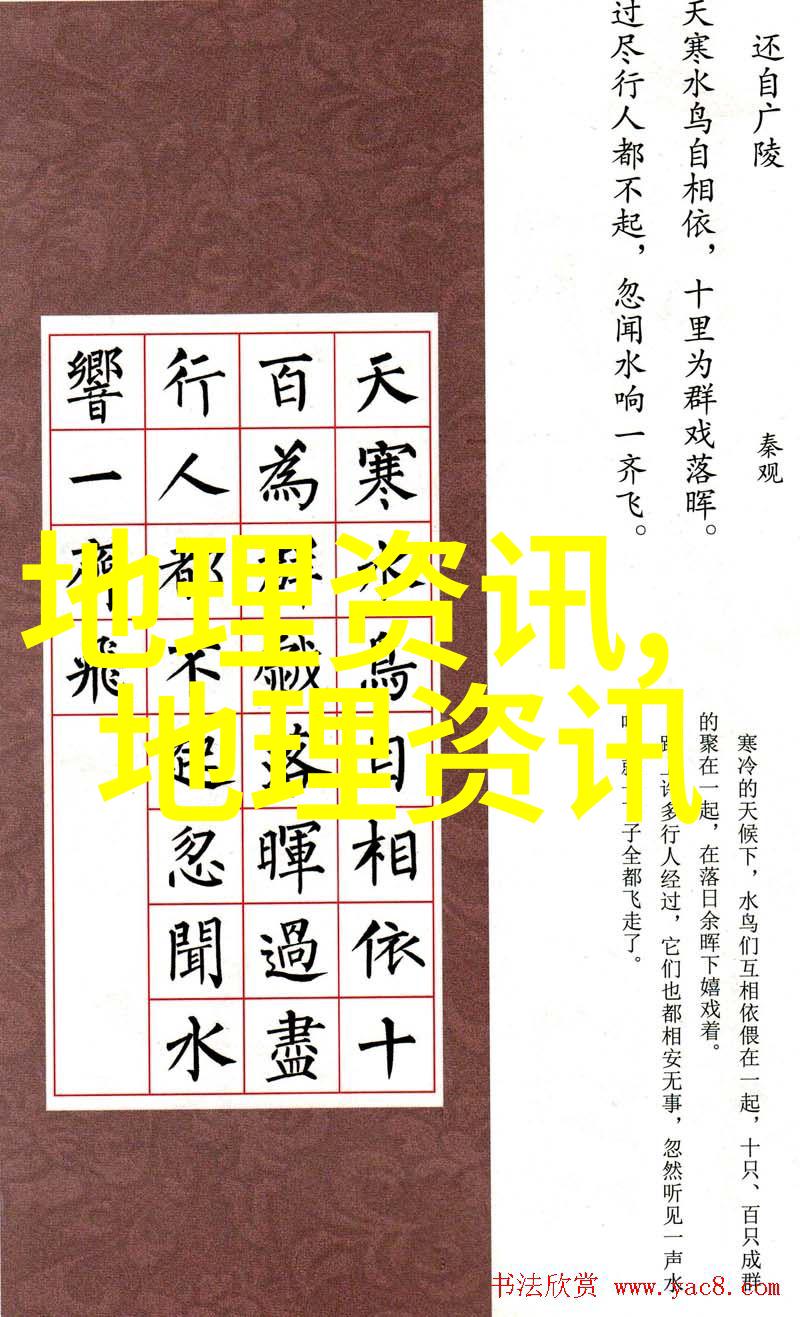 还自广陵
秦观
天寒水鸟自相依，十里为群戏落晖。
过尽行人都不起，忽闻水响一齐飞。
天寒水鳥自相依十
百為群戲落暉過盡
行人都不起忽聞水
響一齊飛
地理资讯,
地理资讯
寒冷的天候下，水鸟们互相依偎在一起，十只、百只成群
的聚在一起，在落日余晖下嬉戏着。
路上许多行人经过，它们也都相安无事，忽然听见一声水
子全都飞走了。
书法欣赏 www.yac8.com